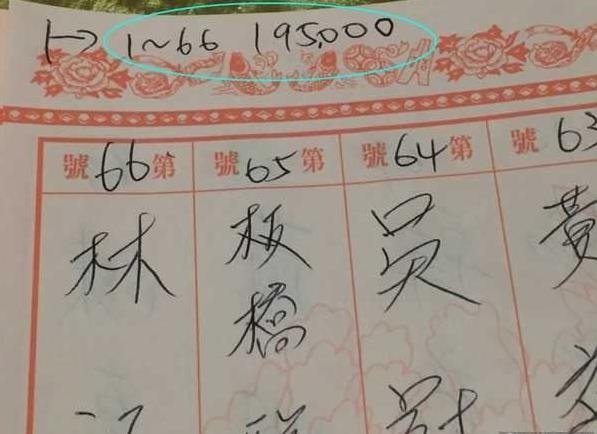 1~66 195,000
第66號
第65號
第64號
第63號
林
板橋
吳
黃